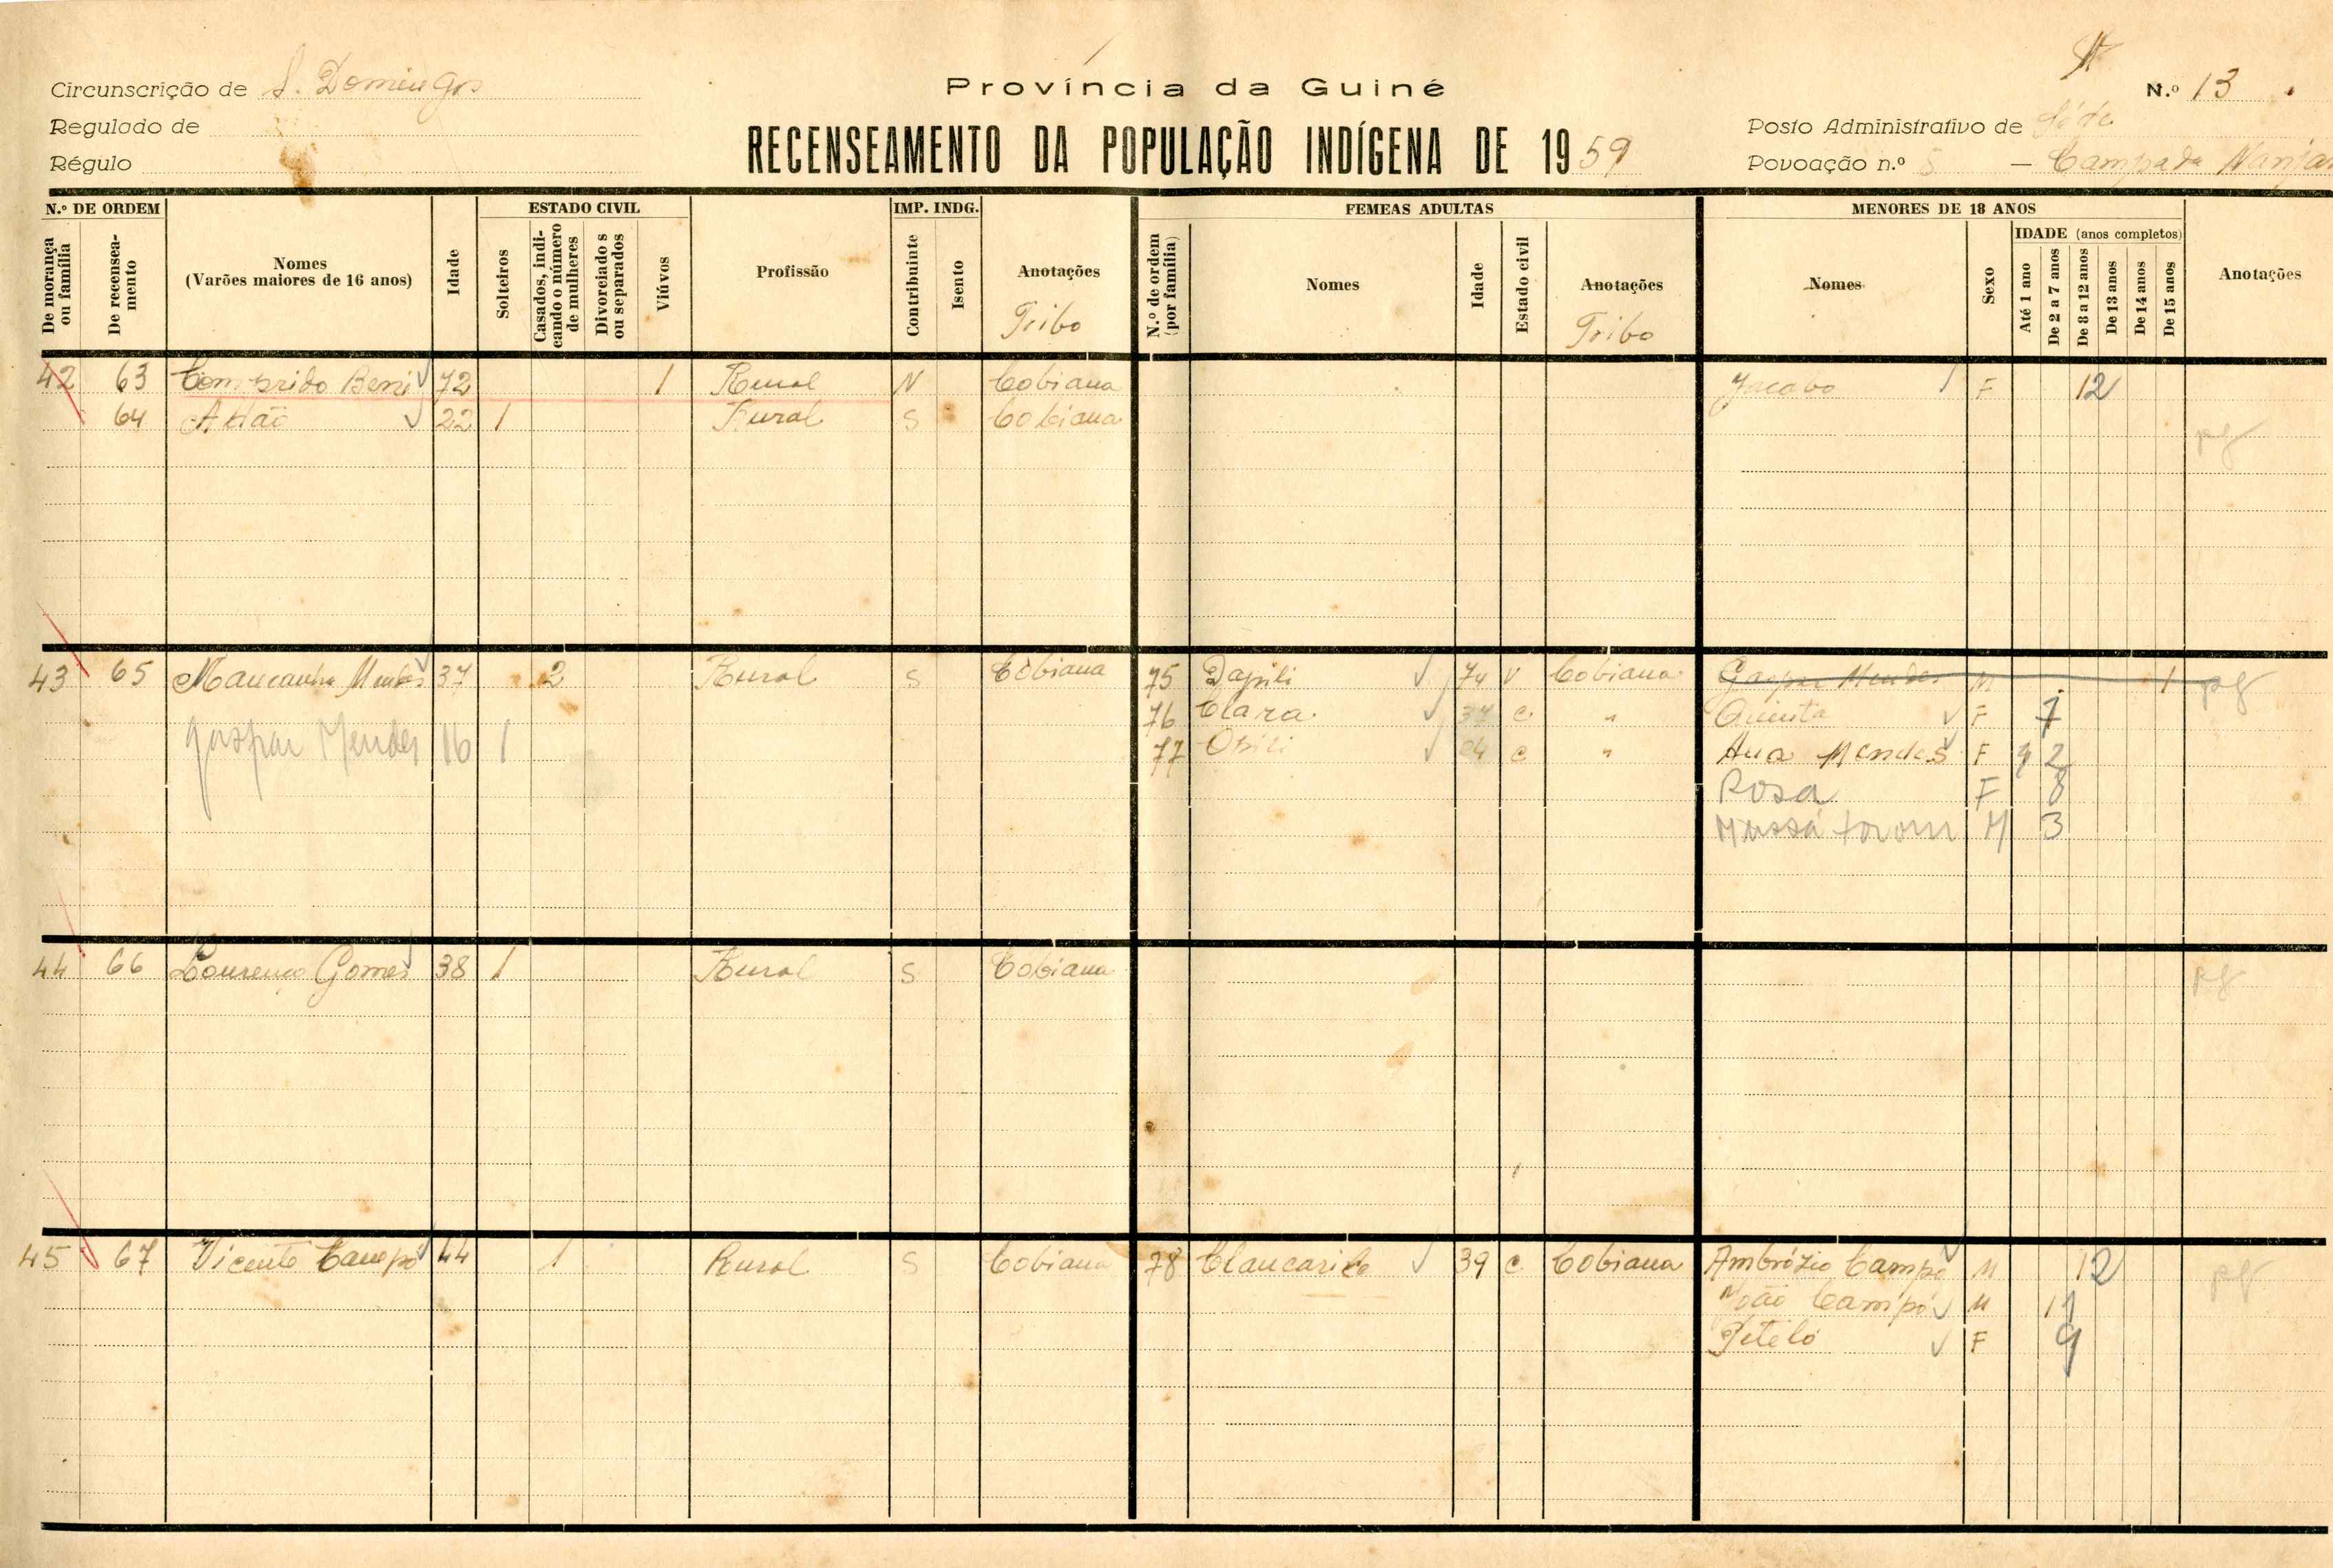 Província da Guiné
Circunscrição de S. Domingos
N.º 13
Regulado de
Régulo
RECENSEAMENTO DA POPULAÇÃO INDÍGENA DE 1959
Posto Administrativo de Séde
Povoação n.º 5 — Campada Manjac
N.º DE ORDEM
ESTADO CIVIL
IMP. INDG.
FEMEAS ADULTAS
MENORES DE 18 ANOS
De morança ou família
De recenseamento
Nomes
(Varões maiores de 16 anos)
Idade
Solteiros
Casados, indicando o número de mulheres
Divorciados ou separados
Viúvos
Profissão
Contribuinte
Isento
Anotações
Tribo
N.º de ordem (por família)
Nomes
Idade
Estado civil
Anotações
Tribo
Nomes
Sexo
IDADE (anos completos)
Até 1 ano
De 2 a 7 anos
De 8 a 12 anos
De 13 anos
De 14 anos
De 15 anos
Anotações
42 63 Comprido Beni 72 1 Rural N Cobiana Jacobo F 12
64 22 1 Rural S Cobiana pg
43 65 Mancanha Mendes 37 2 Rural S Cobiana 75 Dapili 74 V Cobiana Gaspar Mendes M 1 pg
76 Clara 37 C " Quinta F 7
Gaspar Mendes 16 1 77 24 C " Ana Mendes F 2
Rosa F 8
Mussá M 3
44 66 Lourenço Gomes 38 1 Rural S Cobiana pg
45 67 Vicente Campó 44 1 Rural S Cobiana 78 39 C Cobiana Ambrózio Campó M 12 pg
João Campó M 11
Petéló F 9